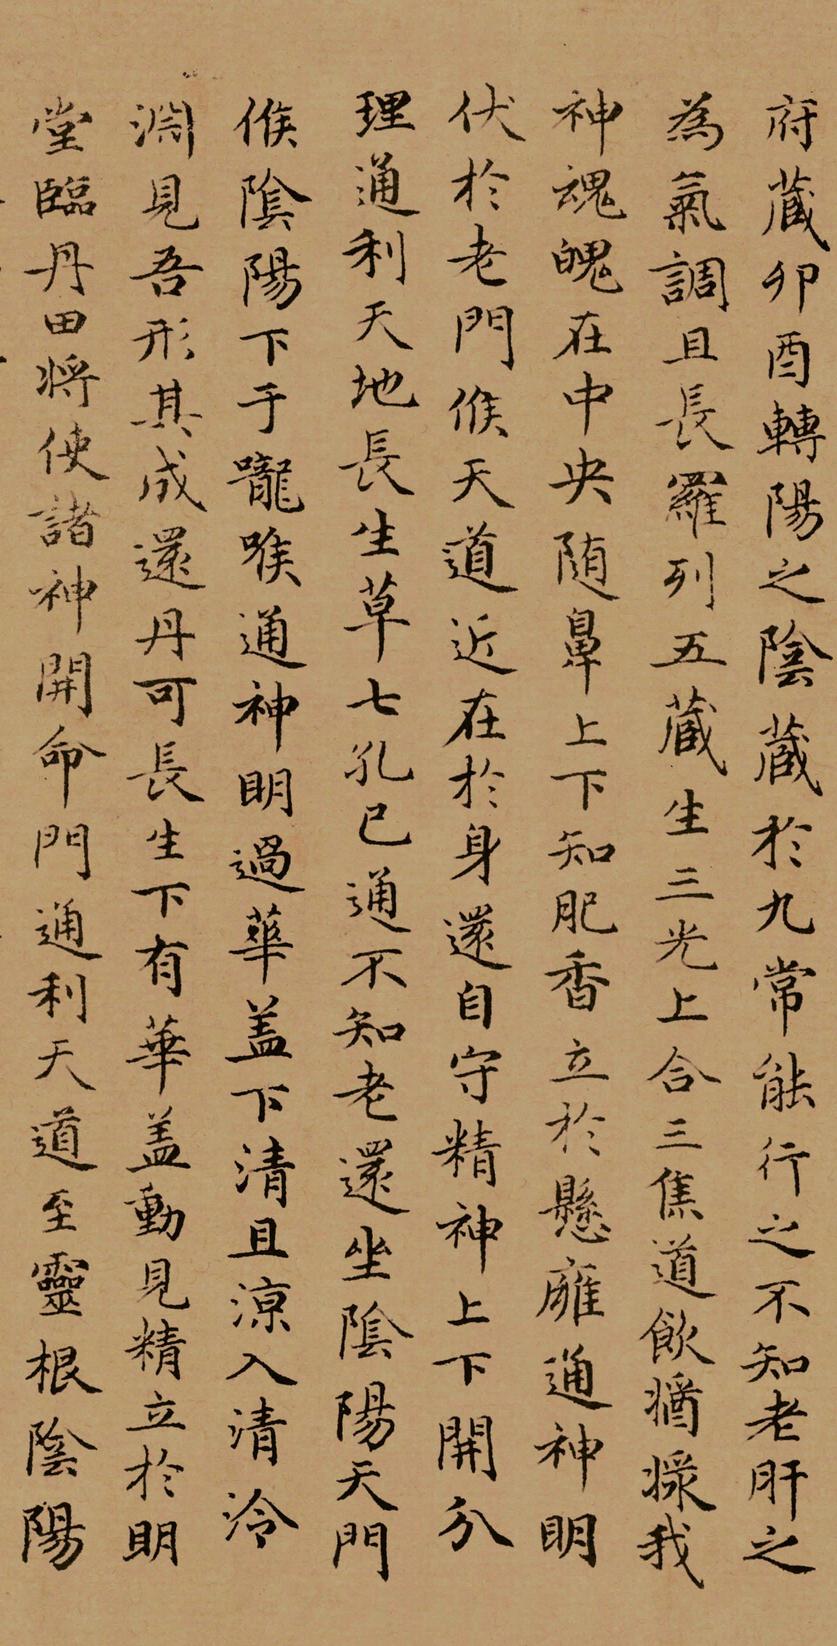 府藏卯酉轉陽之陰藏於九常能行之不知老肝之
為氣調且長羅列五藏生三光上合三焦道飲
神魂魄在中央随鼻上下知肥香立於懸廱通神明
伏於老門候天道近在於身還自守精神上下開分
理通利天地長生草七孔已通不知老還坐陰陽天門
候陰陽下于嚨喉通神明過華盖下清且涼入清泠
淵見吾形其成還丹可長生下有華盖動見精立於明
堂臨丹田将使諸神開命門通利天道至靈根陰陽